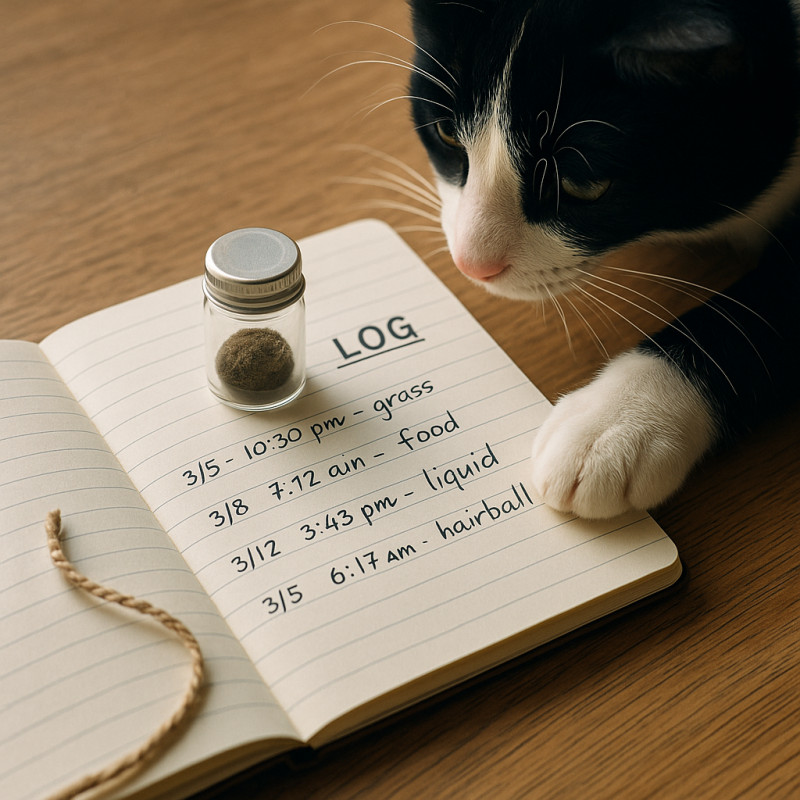 LOG
3/5 - 10:30 pm - grass
3/8 7:12 ain - food
3/12 3:43 pm - liquid
3/5 6:17 AM - hairball